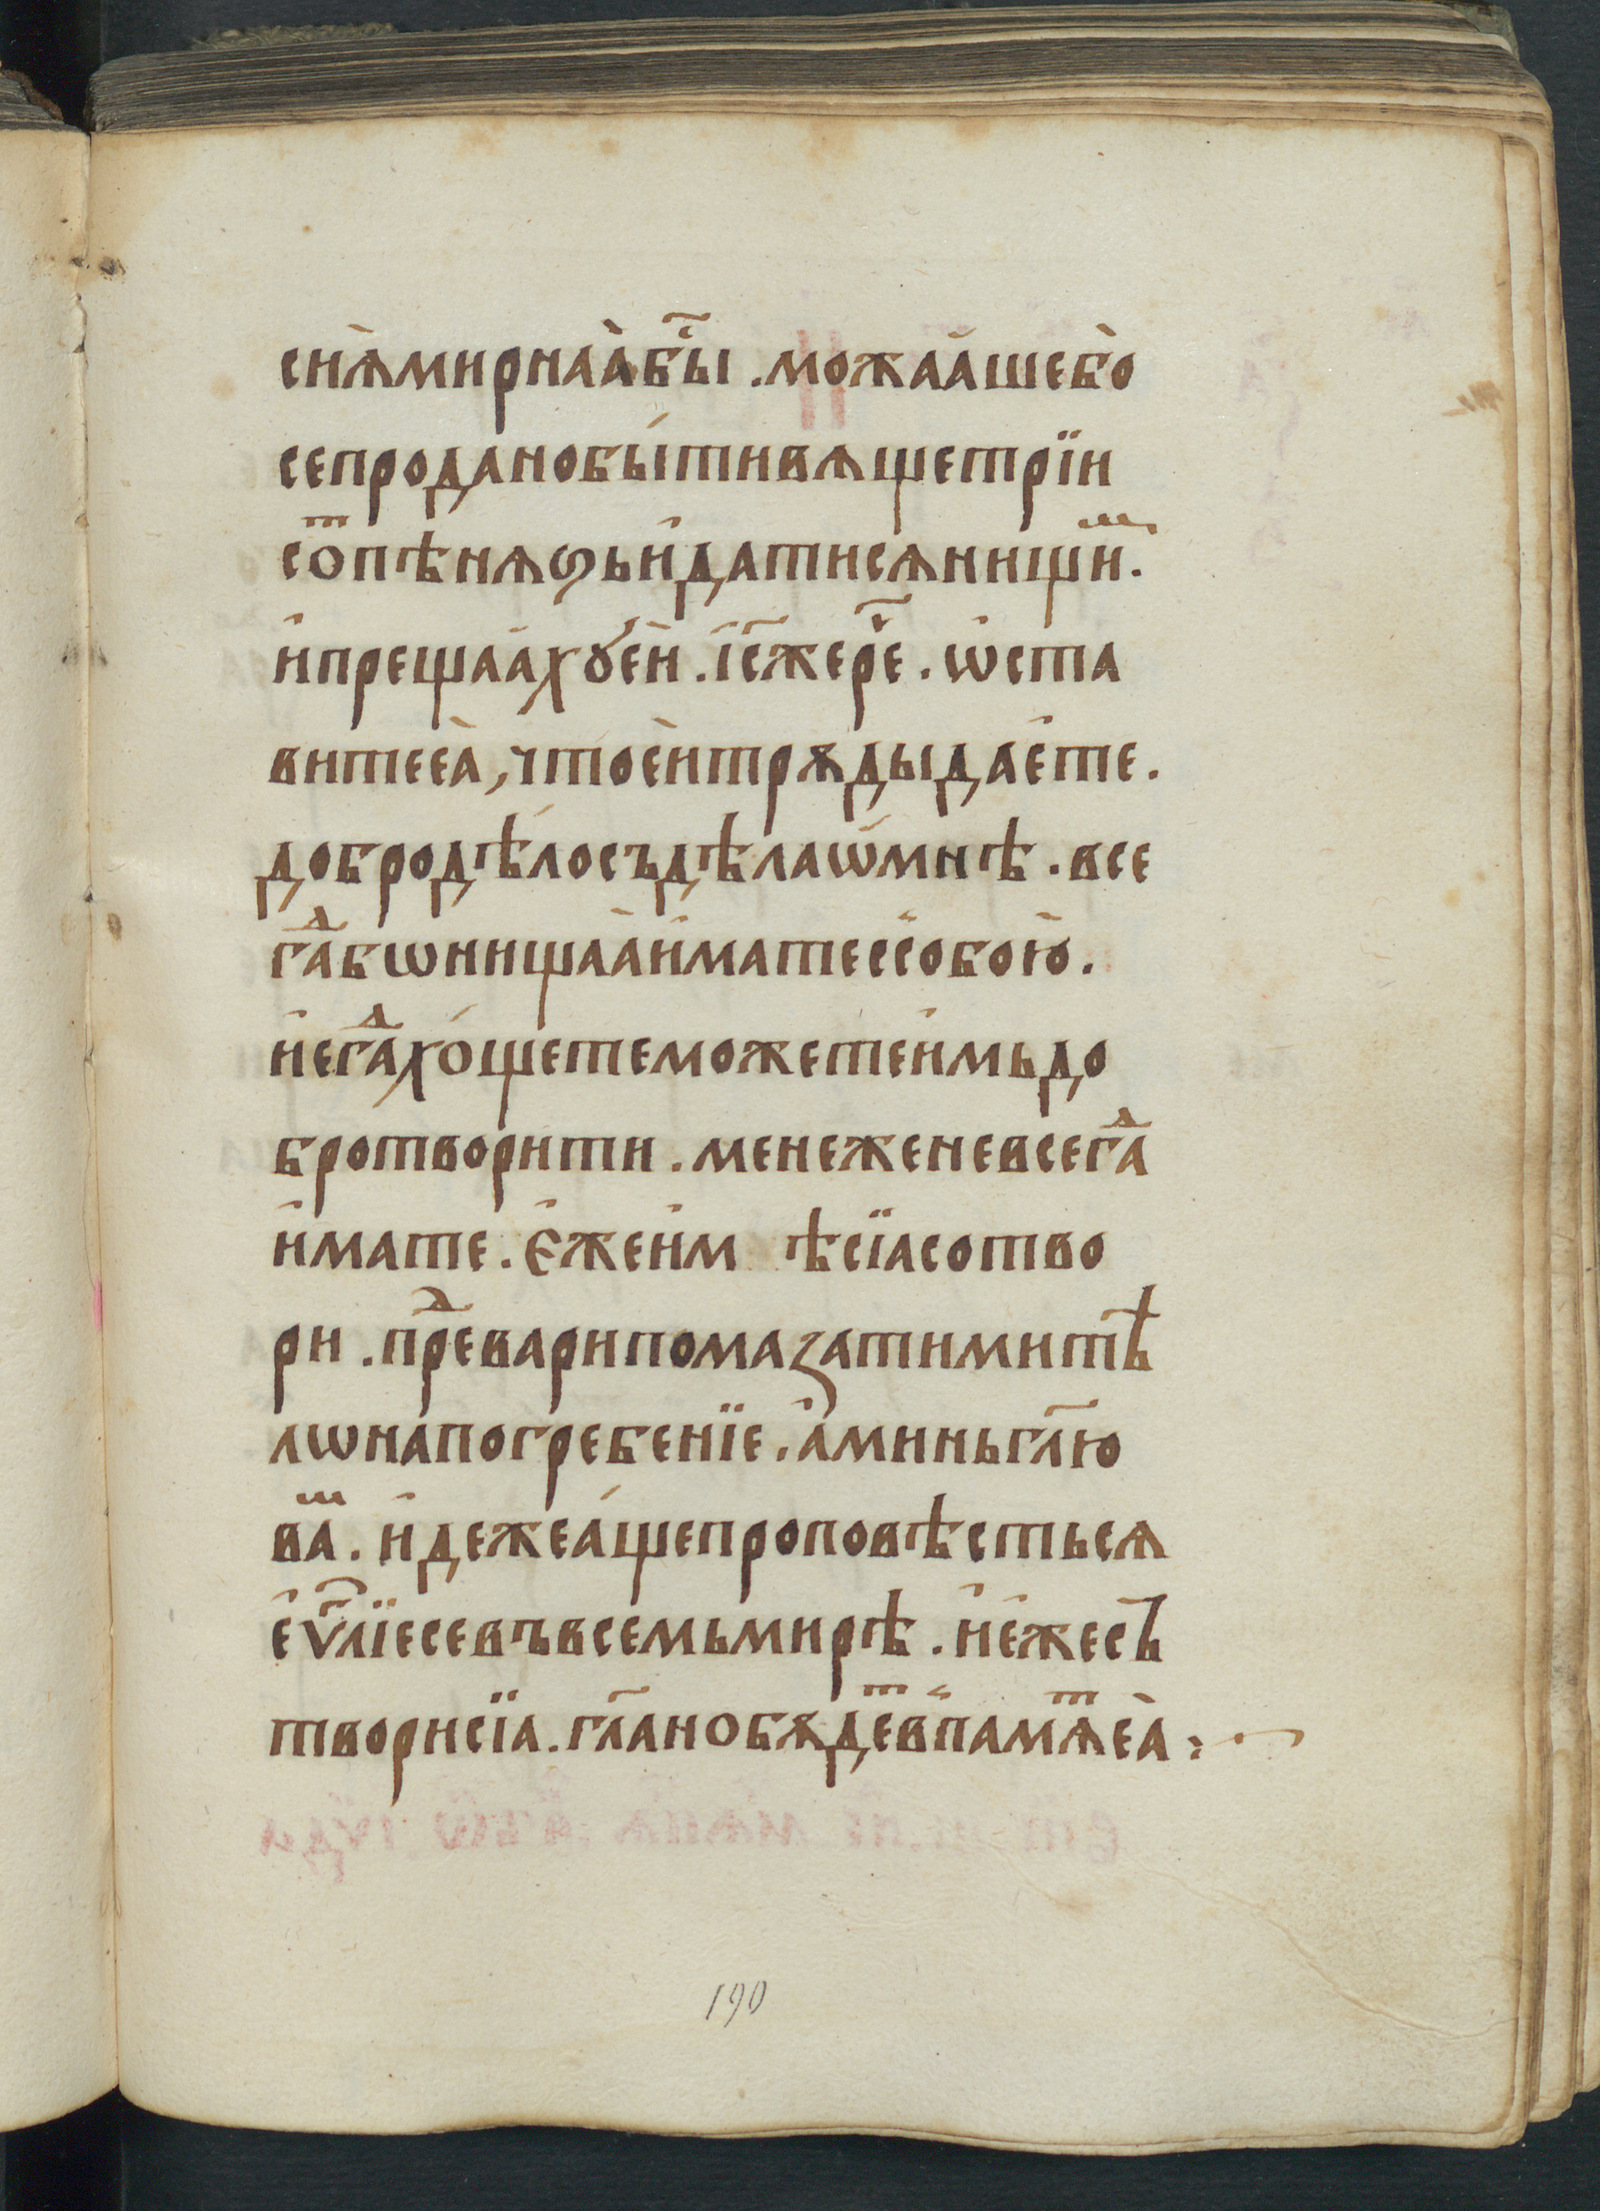 сиꙗ̀мирнаа̀бы̑ⷭ҇ .можаа́шебо̀
сепродано́бы́тивѧщетрїи
со҃ⷮпѣнѧꙃьи҆дати́сѧни́щиⷨ.
и҆прещаа́хꙋ̀е҆и .і҆с҃жереч҇е . ѡ҆ста
витееа̀, чтоѐитрѫдыдае́те .
добродѣ́лосъдѣлаѡ҆мнѣ . все
гдⷶ҇абѡни́щаа̀и҆матессобо́ю .
и҆егⷣахо́щетеможетеи҆мьдо
бротвори́ти . менеженевсегⷣа
и҆мате . є҆жеи҆м ѣсїасотво
ри .прⷣевари́помазатимитѣ
лѡнапогребенїе .а҆миньгл҃ю
ваⷨ . и҆дежеа́щепроповѣстьсѧ
е҆ѵⷢ҇лїесевъвсемьмирѣ . и҆е́жесъ
творисїа .гл҃анобѫдеⷮвⸯпамѧⷮеа̀ :~
190